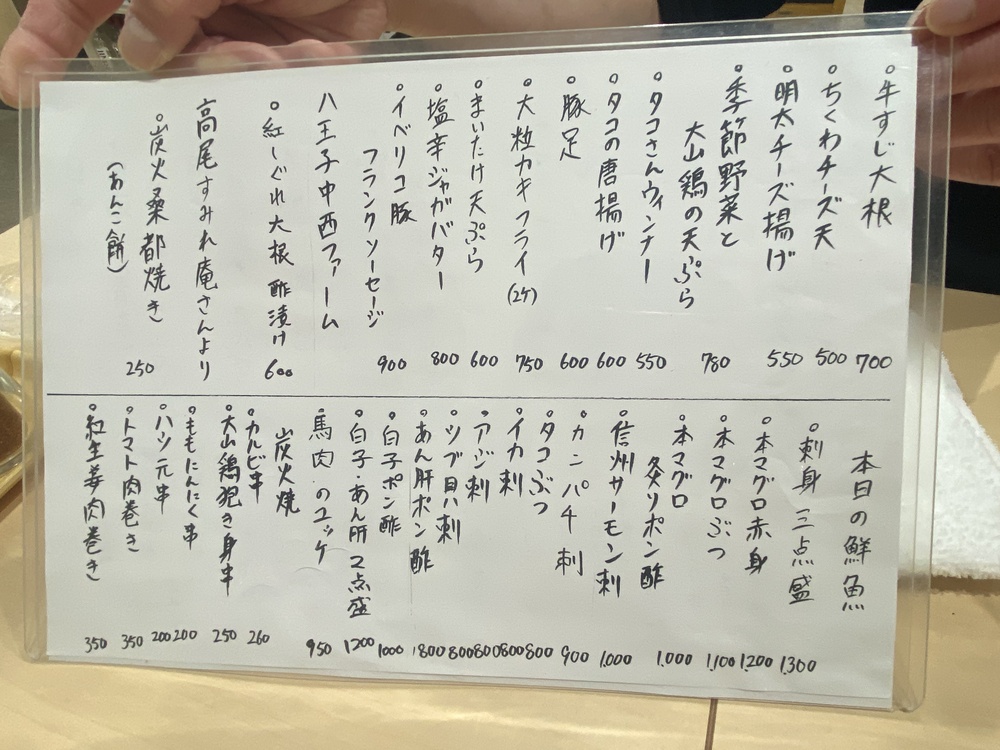 ・牛すじ大根 700
・ちくわチーズ天 500
・明太チーズ揚げ 550
・季節野菜と
大山鶏の天ぷら 780
・タコさんウィンナー 550
・タコの唐揚げ 600
・豚足 600
・大粒カキフライ(2ケ) 750
・まいたけ天ぷら 600
・塩辛ジャガバター 800
・イベリコ豚
フランクソーセージ 900
八王子中西ファーム
・紅しぐれ大根 酢漬け 600
高尾すみれ庵さんより
・炭火桑都焼き
(あんこ餅) 250
本日の鮮魚
・刺身三点盛 1300
・本マグロ赤身 1200
・本マグロぶつ 1,100
・本マグロ
炙りポン酢 1,000
・信州サーモン刺 1,000
・カンパチ刺 900
・タコぶつ 800
・イカ刺 800
・アジ刺 800
・ツブ貝刺 800
・あん肝ポン酢 800
・白子ポン酢 1000
・白子・あん肝2点盛 1200
・馬肉のユッケ 950
炭火焼
・カルビ串 260
・大山鶏抱き身串 250
・ももにんにく串 200
・ハツ元串 200
・トマト肉巻き 350
・紅生姜肉巻き 350